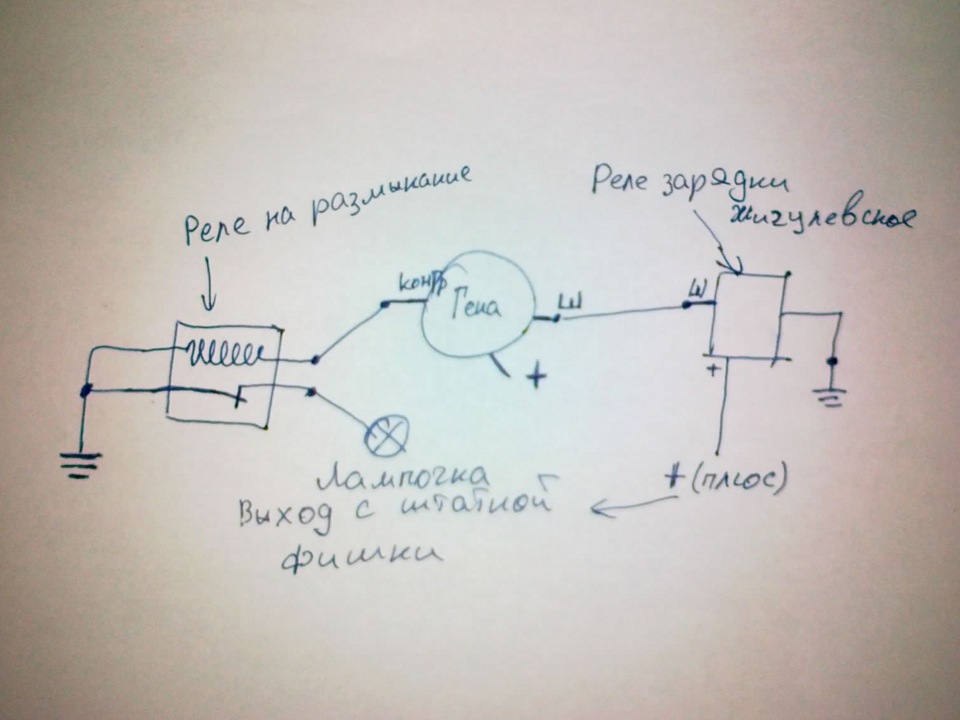 Реле зарядки
жигулевское
Реле на размыкание
контр
Гена
Ш
Ш
+
+
Лампочка
+ (плюс)
Выход с штатной
фишки